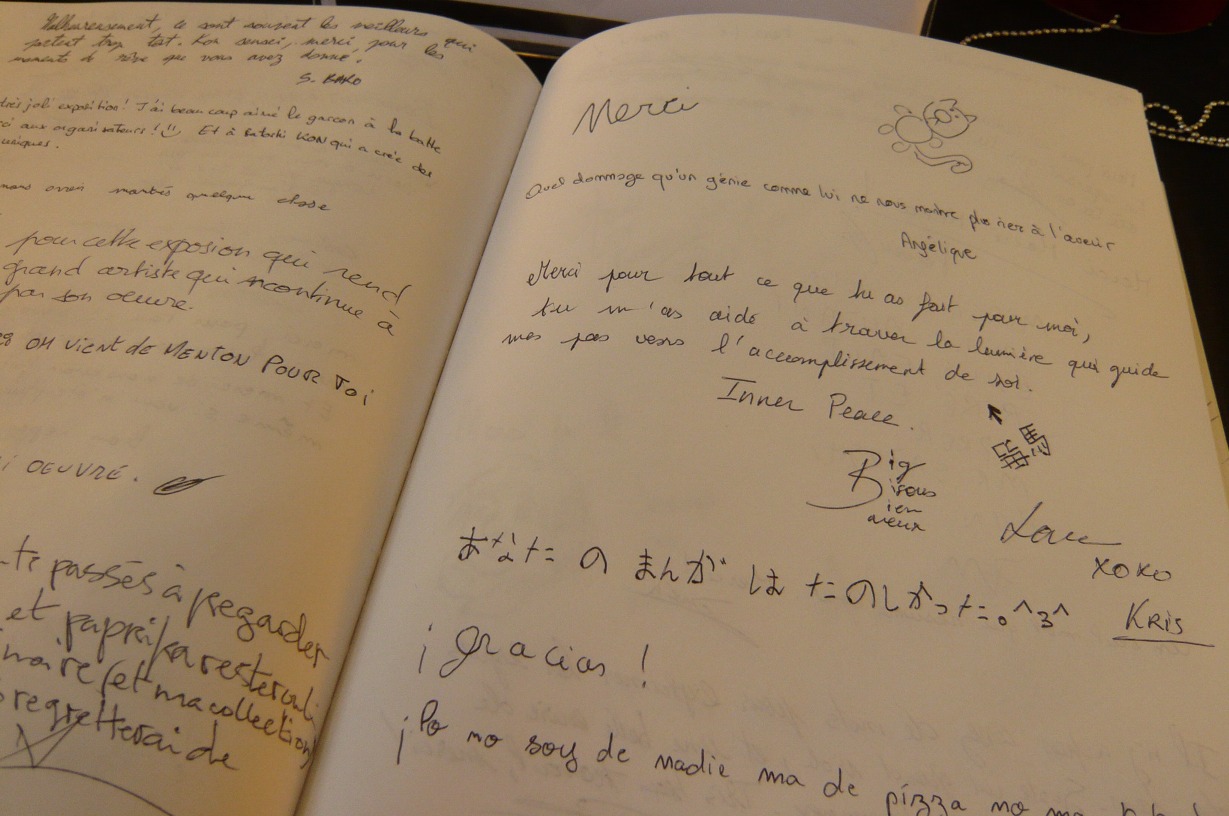 Malheureusement, ce sont souvent les meilleurs qui
partent trop tot. Kon sensei, merci, pour les
moments de rêve que vous avez donné.
S. KAKO
très joli exposition! J'ai beaucoup aimé le garçon à la batte
aux organisateurs! Et à Satoshi KON qui a créé des
uniques.
marqués quelque chose
pour cette exposion qui rend
grand artiste qui continue à
par son oeuvre.
ON VIENT DE MENTON POUR TOI
OEUVRE.
passés à regarder
et paprika resteront
(et ma collection)
regretterai de
Merci
Quel dommage qu'un génie comme lui ne nous montre plus rien à l'avenir
Angélique
Merci pour tout ce que tu as fait pour moi,
tu m'as aidé à trouver la lumière qui guide
mes pas vers l'accomplissement de soi.
Inner Peace.
Big
Bisous
Bien
aveux
Lou
XOXO
あなたのまんがはたのしかった。^3^
KRIS
¡Gracias!
¡Po no soy de nadie ma de pizza no